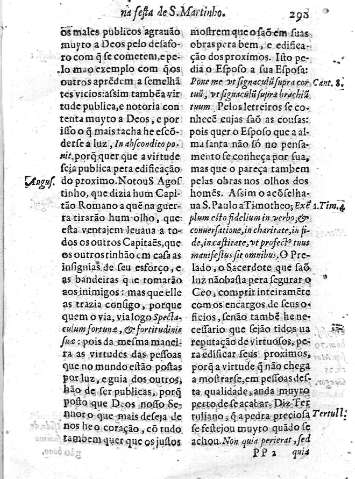 na festa de S. Martinho.
298
os males publicos agrauão
muyto a Deos pelo desafo-
ro com q̃ se cometem, e pe-
lo mao exemplo com q̃ os
outros aprẽdem a semelhã
tes vicios: assim tambẽa vir
tude publica, e notoria con
tenta muyto a Deos, e por
isso o q̃ mais tacha he escõ-
derse a luz, In abscondito po-
nit, porq̃ quer que a virtude
seja publica pera edificação
Angus.
do proximo. Notou S. Agos
tinho, que dizia hum Capi
tão Romano a quẽ na guer-
ra tirarão hum olho, que
esta ventajem leuaua a to-
dos os outros Capitães, que
os outros tinhão em casa as
insignias de seu esforço, e
as bandeiras que tomarão
aos inimigos: mas que elle
as trazia consigo, porque
quem o via, via logo Specta-
culum fortunæ, & fortitudinis
suæ: pois da mesma manei-
ra as virtudes das pessoas
que no mundo estão postas
por luz, e guia dos outros,
hão de ser publicas, porq̃
posto que Deos nosso Se-
nhor o que mais deseja de
nos he o coração, cõ tudo
tambem quer que os justos
mostrem que o são em suas
obras pera bem, e edifica-
ção dos proximos. Isto pe-
dia o Esposo a sua Esposa:
Pone me vt signaculũ supra cor
Cant. 8.
tuũ, vt signaculũ supra brachiũ
tuum. Pelos letreiros se co-
nhecẽ cujas são as cousas:
pois quer o Esposo que a al-
ma santa não só no pensa-
mento se conheça por sua,
mas que o pareça tambem
pelas obras nos olhos dos
homẽs. Assim o acõselha-
ua S. Paulo a Timotheo; Exẽ
1. Tim. 4.
plum esto fidelium in verbo, &
conuersatione, in charitate, in fi-
de, in castitate, vt profect' tuus
manifestus sit omnibus. O Pre-
lado, o Sacerdote que saõ
luz não basta pera segurar o
Ceo, comprir inteiramẽte
com os encargos de seus o-
ficios, senão tambẽ he ne-
cessario que sejão tidos na
reputação de virtuosos, pe-
ra edificar seus proximos,
porq̃ a virtude q̃ não chega
a mostrarse, em pessoas des-
ta qualidade, anda muyto
perto de se acabar. Diz Ter
Tertull.
tuliano, q̃ a pedra preciosa
se festejou muyto quãdo se
achou. Non quia perierat, sed
P p 2
quia